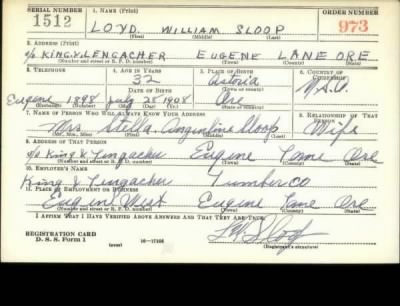 SERIAL NUMBER 1. NAME (Print) ORDER NUMBER
1512 LOYD WILLIAM SLOOP 973
(First) (Middle) (Last)
2. ADDRESS (Print)
c/o KING & LENGACHER EUGENE LANE ORE
(Number and street or R. F. D. number) (Town) (County) (State)
3. TELEPHONE 4. AGE IN YEARS 5. PLACE OF BIRTH 6. COUNTRY OF CITIZENSHIP
32 Astoria
DATE OF BIRTH (Town or county) U.S.A.
Eugene 1898 July 28 1908 Ore
(Exchange) (Number) (Mo.) (Day) (Yr.) (State or country)
7. NAME OF PERSON WHO WILL ALWAYS KNOW YOUR ADDRESS 8. RELATIONSHIP OF THAT PERSON
Mrs. Stella Sloop Wife
(Mr., Mrs., Miss) (First) (Middle) (Last)
9. ADDRESS OF THAT PERSON
c/o King & Lengacher Eugene Lane Ore
(Number and street or R. F. D. number) (Town) (County) (State)
10. EMPLOYER'S NAME
King & Lengacher Lumber Co
11. PLACE OF EMPLOYMENT OR BUSINESS
Eugene West Eugene Lane Ore
(Number and street or R. F. D. number) (Town) (County) (State)
I AFFIRM THAT I HAVE VERIFIED ABOVE ANSWERS AND THAT THEY ARE TRUE.
REGISTRATION CARD
D. S. S. Form 1 (over) 16—17105 (Registrant's signature)